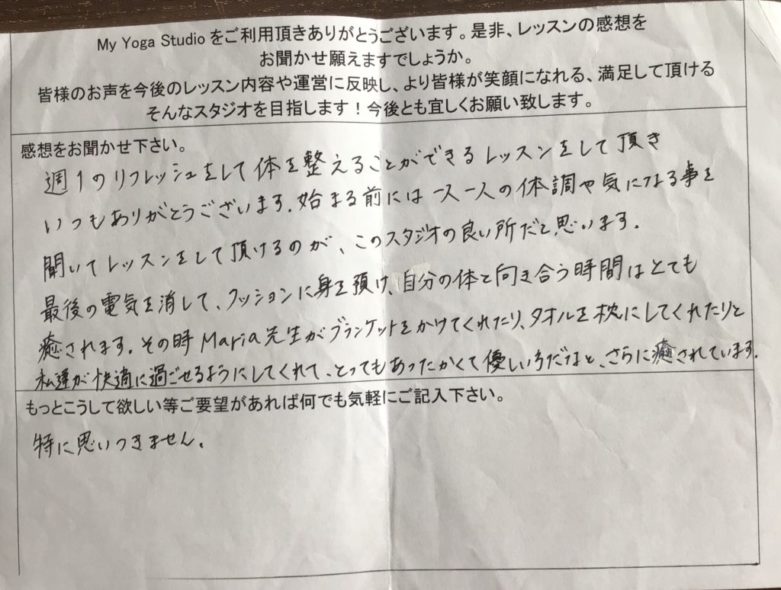 My Yoga Studio をご利用頂きありがとうございます。是非、レッスンの感想を
お聞かせ願えますでしょうか。
皆様のお声を今後のレッスン内容や運営に反映し、より皆様が笑顔になれる、満足して頂ける
そんなスタジオを目指します！今後とも宜しくお願い致します。
感想をお聞かせ下さい。
週1のリフレッシュをして体を整えることができるレッスンをして頂き
いつもありがとうございます。始まる前には一人一人の体調や気になる事を
聞いてレッスンをして頂けるのが、このスタジオの良い所だと思います。
最後の電気を消して、クッションに身を預け、自分の体と向き合う時間はとても
癒されます。その時Maria先生がブランケットをかけてくれたり、タオルを枕にしてくれたりと
私達が快適に過ごせるようにしてくれて、とってもあったかくて優しい方だなと、さらに癒されています。
もっとこうして欲しい等ご要望があれば何でも気軽にご記入下さい。
特に思いつきません。